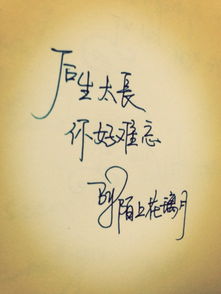 后生太長
你好难忘
陌上花璃月